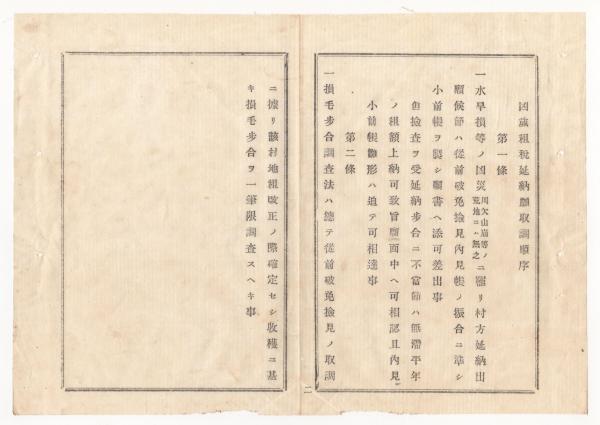 凶歳租税延納願取調順序
第一條
一水旱損等ノ凶災川欠山崩等ノ荒地ニハ無之ニ罹リ村方延納出
願候節ハ從前破免撿見內見帳ノ振合ニ準シ
小前帳ヲ製シ願書ヘ添可差出事
但撿査ヲ受延納步合ニ不當節ハ無滯平年
ノ租額上納可致旨願面中ヘ可相認且內見
小前帳雛形ハ追テ可相達事
第二條
一損毛步合調査法ハ總テ從前破免撿見ノ取調
二
ニ據リ該村地租改正ノ際確定セシ收穫ニ基
キ損毛步合ヲ一筆限調査スヘキ事